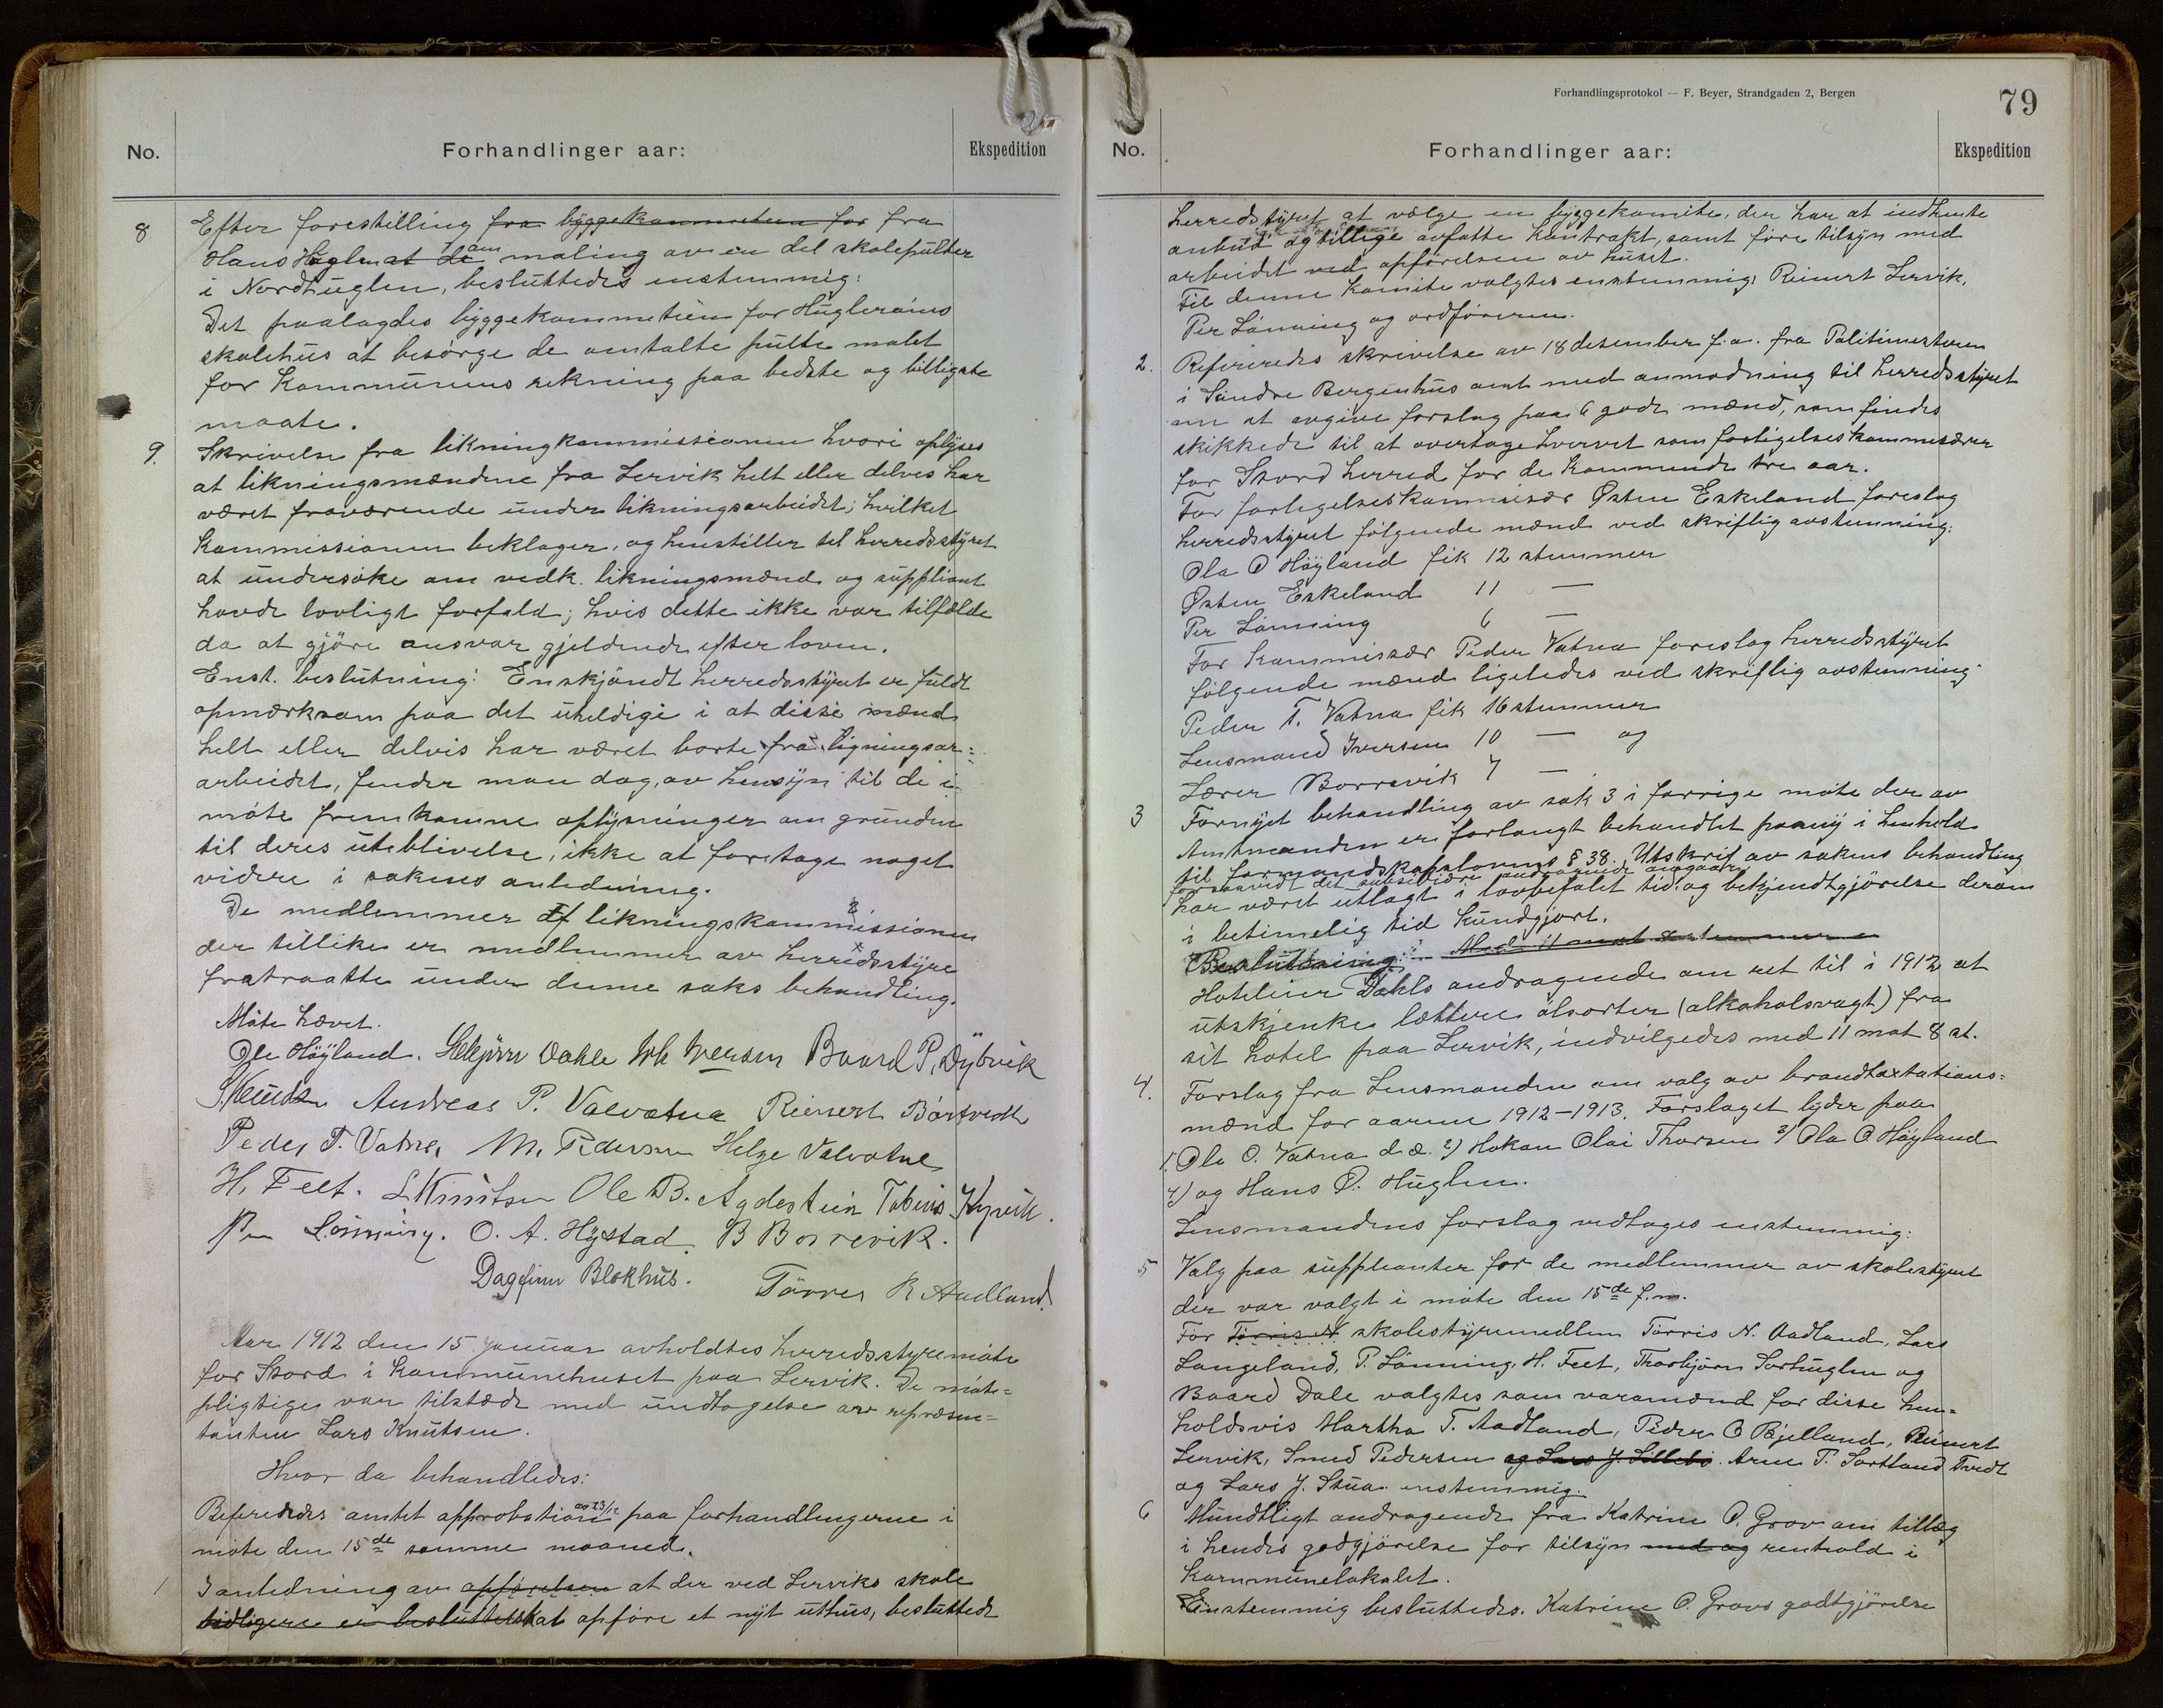 No.
Forhandlinger aar:
Ekspedition
8 Efter forestilling fra byggekommiteen for fra
Hans Huglen at de om maling av en del skolepulter
i Nordhuglen, besluttedes enstemmig:
Det paalagdes byggekommitéen for Huglerøens
skolehus at besørge de omtalte pulte malt
for kommunens rekning paa bedste og billigste
maate.
9. Skrivelse fra likningkommissionen hvori oplyses
at likningsmændene fra Lervik helt eller delves har
været fraværende under likningsarbeidet; hvilket
kommissionen beklager, og henstiller til herredsstyret
at undersøke om vedk. likningsmænd og suppliant
havde lovligt forfald; hvis dette ikke var tilfælde
da at gjöre ansvar gjeldende efter loven.
Enst. beslutning: Enskjöndt herredsstyret er fuldt
opmærksom paa det uheldige i at disse mænd
helt eller delvis har været borte fra ligningsar=
arbeidet, finder man dog, av hensyn til de i
möte fremkomne oplysninger om grunden
til deres uteblivelse, ikke at foretage noget
videre i sakens anledning.
De medlemmer af likningskommissionen
der tillike er medlemmer av herredsstyre
fratraatte under denne saks behandling.
Möte hævet.
Ole Höyland. Torbjörn Dahle Joh Iversen Baard P. Dybvik
S Knudsen Andreas P. Valvatne Reinert Börtvedt
Peder T. Vatne, M. Pedersen Helge Valvatne
H. Feet. L Knutsen Ole B. Agdestein Tobias Kyvik.
Per Lönning. O. A. Hystad. B Borrevik.
Dagfinn Blokhus. Törres R Aadland.
Aar 1912 den 15 januar avholdtes herredsstyremöte
for Stord i kommunehuset paa Lervik. De möte=
pligtige var tilstæde med undtagelse av repræsen=
tanten Lars Knutsen.
Hvor da behandledes:
Refereredes amtet approbation av 23/12 paa forhandlingerne i
möte den 15de samme maaned.
1 I anledning av opførelsen at der ved Lerviks skole
tidligere er besluttet skal opføre et nyt uthus, besluttede
Forhandlingsprotokol — F. Beyer, Strandgaden 2, Bergen
79
No.
Forhandlinger aar:
Ekspedition
herredsstyret at vælge en byggekomite, der har at indhente
anbud og tillige avfatte kontrakt, samt føre tilsyn med
arbeidet ved opførelsen av huset.
Til denne komite valgtes enstemmig: Reinert Lervik,
Per Lönning og ordføreren.
2. Refereredes skrivelse av 18 desember f.a. fra Politimesteren
i Söndre Bergenhus amt med anmodning til herredsstyret
om at avgive forslag paa 6 gode mænd, som findes
skikkede til at overtage hvervet som forligelseskommisærer
for Stord herred for de kommende tre aar.
For forligelseskommisær Østen Eskeland foreslog
herredsstyret følgende mænd ved skriftlig avstemning:
Ola O Höyland fik 12 stemmer
Østen Eskeland 11 —
Per Lönning 6 —
For Kommissær Peder Vatna foreslog herredsstyret
følgende mænd ligeledes ved skriftlig avstemning:
Peder T. Vatna fik 16 stemmer
Lensmand Iversen 10 — og
Lærer Borrevik 7 —
3 Fornyet behandling av sak 3 i forrige möte der av
Amtmanden er forlangt behandlet paany i henhold
til formandskapslovens § 38. Utskrift av sakens behandling
forsaavidt det andragende angaar
har været utlagt i lovbefalet tid og bekjendtgjörelse derom
i betimelig tid kundgjort.
Beslutning: Med 11 mot stemmer
Hotelier Dahls andragende om ret til i 1912 at
utskjenke lettere ölsorter (alkoholsvagt) fra
sit hotel paa Lervik, indvilgedes med 11 mot 8 st.
4. Forslag fra Lensmanden om valg av brandtaxtations=
mænd for aarene 1912–1913. Forslaget lyder paa
1. Ole O. Vatna d.æ. 2) Hakon Olai Thorsen 3) Ola O Höyland
4) og Hans O. Huglen.
Lensmandens forslag vedtages enstemmig:
5 Valg paa suppleanter for de medlemmer av skolestyret
der var valgt i möte den 15de f.m.
For Törris N skolestyremedlem Törris N. Aadland, Lars
Langeland, P. Lönning, H. Feet, Thorbjörn Sorhuglen og
Baard Dale valgtes som varamænd for disse hen=
holdsvis Martha T. Aadland, Peder O Bjelland, Reinert
Lervik, Smed Pedersen og Lars J. Lillebö. Arne T. Sortland Tvedt
og Lars J. Stua enstemmig.
6 Mundtligt andragende fra Katrine O. Grov om tillæg
i hendes godgjörelse for tilsyn med og renhold i
kommunelokalet.
Enstemmig besluttedes. Katrine O. Grovs godtgjörelse